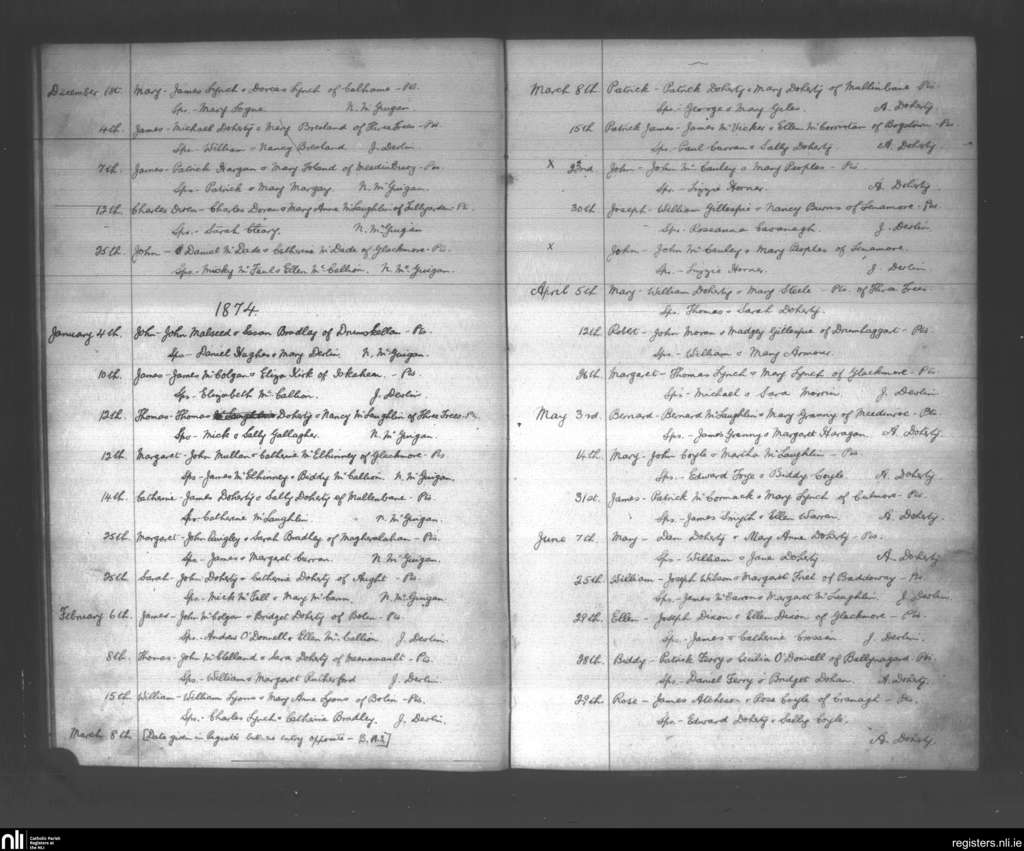 December 1st. Mary - James Lynch & Dorcas Lynch of Calhame - Ps.
Sps. - Mary Logue N. McGuigan
4th. James - Michael Doherty & Mary Bresland of Three Trees - Ps.
Sps. William & Nancy Bresland J. Devlin
7th. James - Patrick Hargan & Mary Toland of - Ps.
Sps. - Patrick & Mary Margay N. McGuigan.
12th. Charles Doran - Charles Doran & Mary Anne McLaughlin of Tullyarden - Ps.
Sps. - Sarah Cleary. N. McGuigan
25th. John - Daniel McDade & Catherine McDade of Glackmore - Ps.
Sps. - Micky McFaul & Ellen McCallion. N. McGuigan.
1874.
January 4th. John - John Malseed & Susan Bradley of Drumskellan - Ps
Sps - Daniel Hughes & Mary Devlin. N. McGuigan.
10th. James - James McColgan & Eliza Kirk of - Ps.
Sps. - Elizabeth McCallion. J. Devlin
12th. Thomas - Thomas Doherty & Nancy McLaughlin of Three Trees - Ps
Sps - Mick & Sally Gallagher. N. McGuigan
12th. Margaret - John Mullan & Catherine McElhinney of Glackmore - Ps
Sps - James McElhinney & Biddy McCallion. N. McGuigan.
14th. Catherine - James Doherty & Sally Doherty of Mullenbane - Ps.
Sps - Catherine McLaughlin N. McGuigan.
25th. Margaret - John Quigley & Sarah Bradley of - Ps.
Sps. - James & Margaret Curran. N. McGuigan
25th. Sarah - John Doherty & Catherine Doherty of Aught - Ps.
Sps. - Mick McFall & Mary McCann. N. McGuigan.
February 6th. James - John McColgan & Bridget Doherty of Bolin - Ps.
Sps. - Andrew O'Donnell & Ellen McCallion J. Devlin.
8th. Thomas - John McClelland & Sara Doherty of - Ps.
Sps. - William & Margaret Rutherford J. Devlin.
15th William - William Lyons & Mary Anne Lyons of Bolin - Ps.
Sps. - Charles Lynch & Catherine Bradley. J. Devlin.
March 8th [Date given in Register but no entry opposite -
March 8th Patrick - Patrick Doherty & Mary Doherty of Mullinbane Ps.
Sps - George & Mary Giles. A. Doherty.
15th Patrick James - James McVicker & Ellen of Bogstown - Ps.
Sps - Paul Curran & Sally Doherty. A. Doherty
X 22nd John - John McCauley & Mary Peoples - Ps.
Sps - Lizzie Horner. A. Doherty.
30th Joseph - William Gillespie & Nancy Burns of Lenamore. - Ps.
Sps. - Roseanna Cavanagh. J. Devlin.
X John - John McCauley & Mary Peoples of Lenamore.
Sps. - Lizzie Horner. J. Devlin
April 5th Mary - William Doherty & Mary Steele - Ps. of Three Trees.
Sps. Thomas & Sarah Doherty.
12th Robert - John Moran & Madgey Gillespie of Drumhaggart - Ps.
Sps. - William & Mary Armour.
26th Margaret - Thomas Lynch & Mary Lynch of Glackmore - Ps.
Sps - Michael & Sara Morrin. J. Devlin
May 3rd. Bernard - Bernard McLaughlin & Mary Granny of - Ps.
Sps. - James Granny & Margaret Haragan. A. Doherty
14th. Mary - John Coyle & Martha McLaughlin - Ps
Sps. - Edward Foye & Biddy Coyle A. Doherty.
31st. James - Patrick McCormack & Mary Lynch of - Ps
Sps. - James Smyth & Ellen Warren. A. Doherty.
June 7th. Mary - Dan Doherty & Mary Anne Doherty - Ps.
Sps - William & Jane Doherty A. Doherty.
25th William - Joseph Wilson & Margaret Friel of - Ps.
Sps. - James McCarron & Margaret McLaughlin. J. Devlin.
29th Ellen - Joseph Dixon & Ellen Dixon of Glackmore - Ps.
Sps. - James & Catherine Crossan J. Devlin.
28th. Biddy - Patrick Ferry & Cecilia O'Donnell of Ballynagard - Ps.
Sps - Daniel Ferry & Bridget Dohan. A. Doherty.
29th Rose - James Atcheson & Rose Coyle of Cranagh - Ps.
Sps - Edward Doherty & Sally Coyle.
A. Doherty.
nli
Catholic Parish
Registers at
the NLI
registers.nli.ie